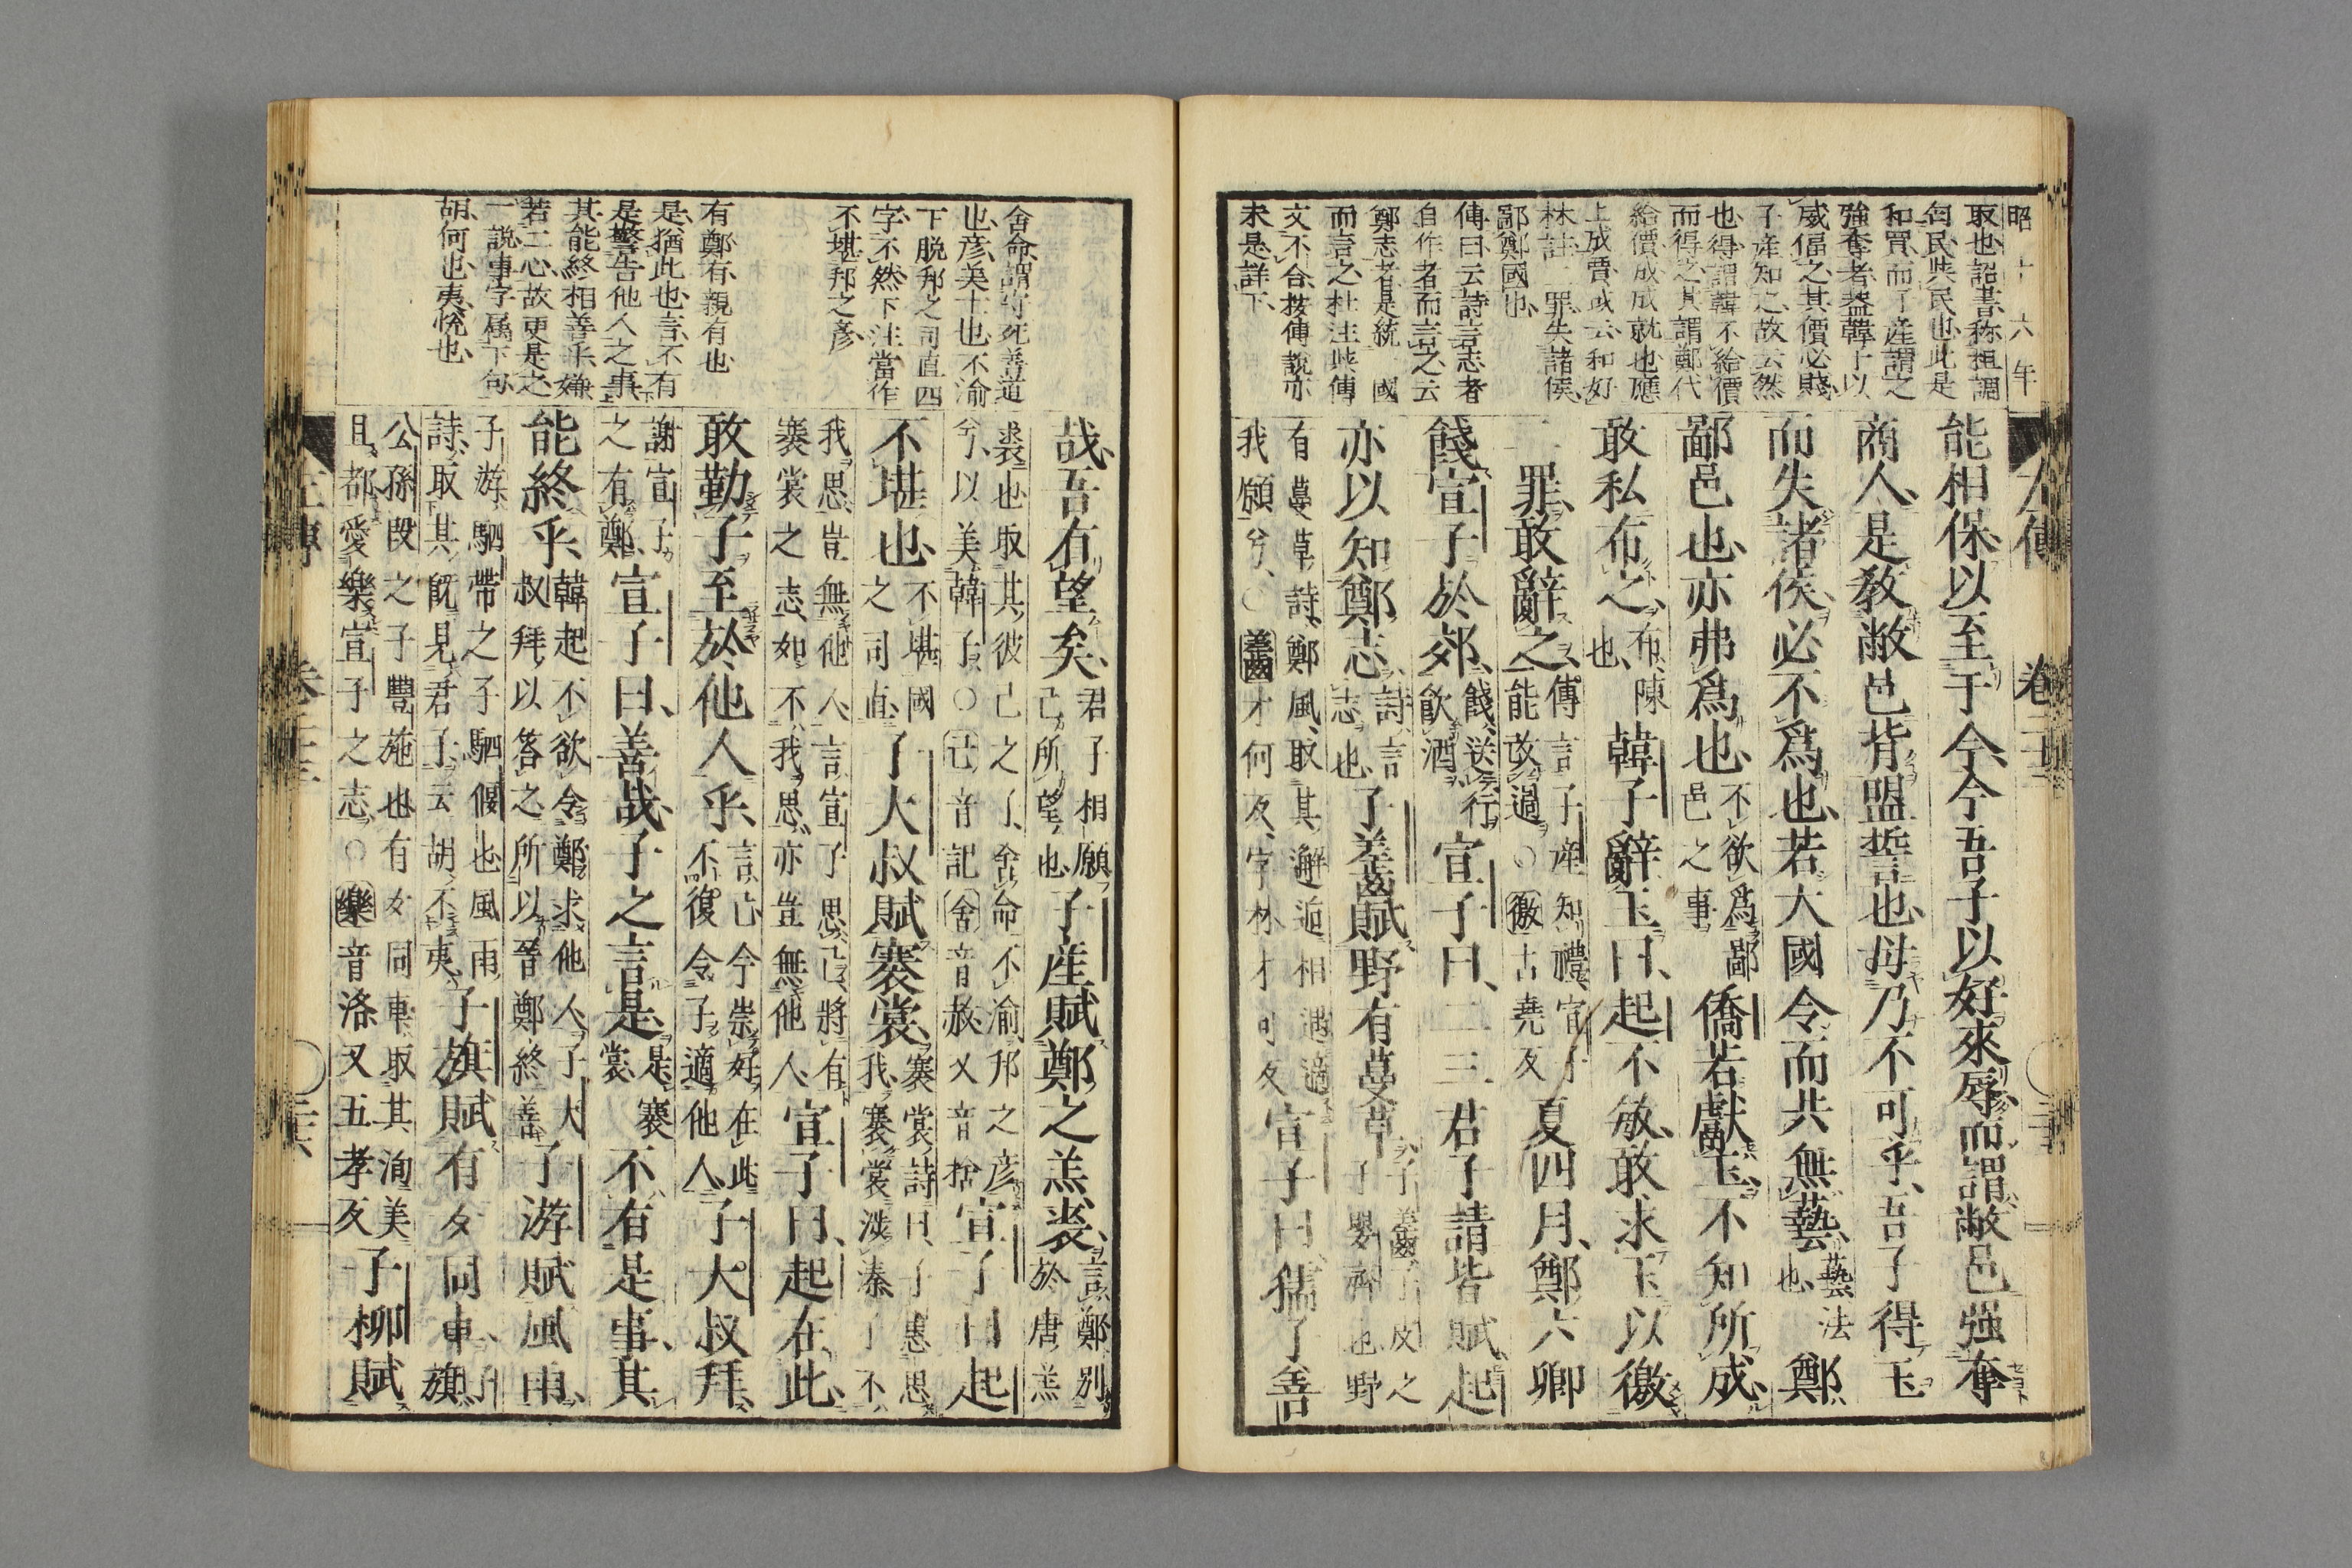 昭十六年
取也詔書称租調
匂民奘民也此是
和買而子産謂之
強奪者蓋韓子以
威偪之其價必賤
子産知之故云然
也得謂韓不給價
而得之其謂鄭代
給價成成就也應
上成賈或云和好
林註二罪失諸侯
鄙鄭國也
傳曰云詩言志者
自作者而言之云
鄭志者是統一國
而言之杜注與傳
文不合按傳説亦
未是詳下
左傳 卷二十三
能相保以至于今今吾子以好來辱而謂敝邑强奪
商人是敎敝邑背盟誓也毋乃不可乎吾子得玉
而失諸侯必不爲也若大國令而共無藝藝法也鄭
鄙邑也亦弗爲也不欲爲鄙邑之事僑若獻玉不知所成
敢私布之布陳也韓子辭玉曰起不敏敢求玉以徼
二罪敢辭之傳言子産知禮宣子能改過○徼古堯反夏四月鄭六卿
餞宣子於郊餞送行飮酒宣子曰二三君子請皆賦起
亦以知鄭志詩言志也子齹賦野有蔓草子齹子皮之子嬰齊也野
有蔓草詩鄭風取其邂逅相遇適我願兮○齹才何反字林才可反宣子曰孺子善
舍命謂守死善道
也彦美士也不渝
下脱邦之司直四
字不然下注當作
不堪邦之彦
有鄭有親有也
是猶此也言不有
是警告他人之事
其能終相善乎嫌
若二心故更是之
一説事字屬下句
胡何也夷悅也
哉吾有望矣君子相願己所望也子産賦鄭之羔裘言鄭別於唐羔
裘也取其彼己之子舍命不渝邦之彦兮以美韓子○己音記舍音赦又音捨宣子曰起
不堪也不堪國之司直子大叔賦褰裳褰裳詩曰子惠思我褰裳涉溱子不
我思豈無他人言宣子思己將有褰裳之志如不我思亦豈無他人宣子曰起在此
敢勤子至於他人乎言己今崇好在此不復令子適他人子大叔拜
謝宣子之有鄭宣子曰善哉子之言是是褰裳不有是事其
能終乎韓起不欲令鄭求他人子大叔拜以答之所以晉鄭終善子游賦風雨
子游駟帶之子駟偃也風雨詩取其旣見君子云胡不夷子旗賦有女同車子旗
公孫段之子豐施也有女同車取其洵美且都愛樂宣子之志○樂音洛又五孝反子柳賦